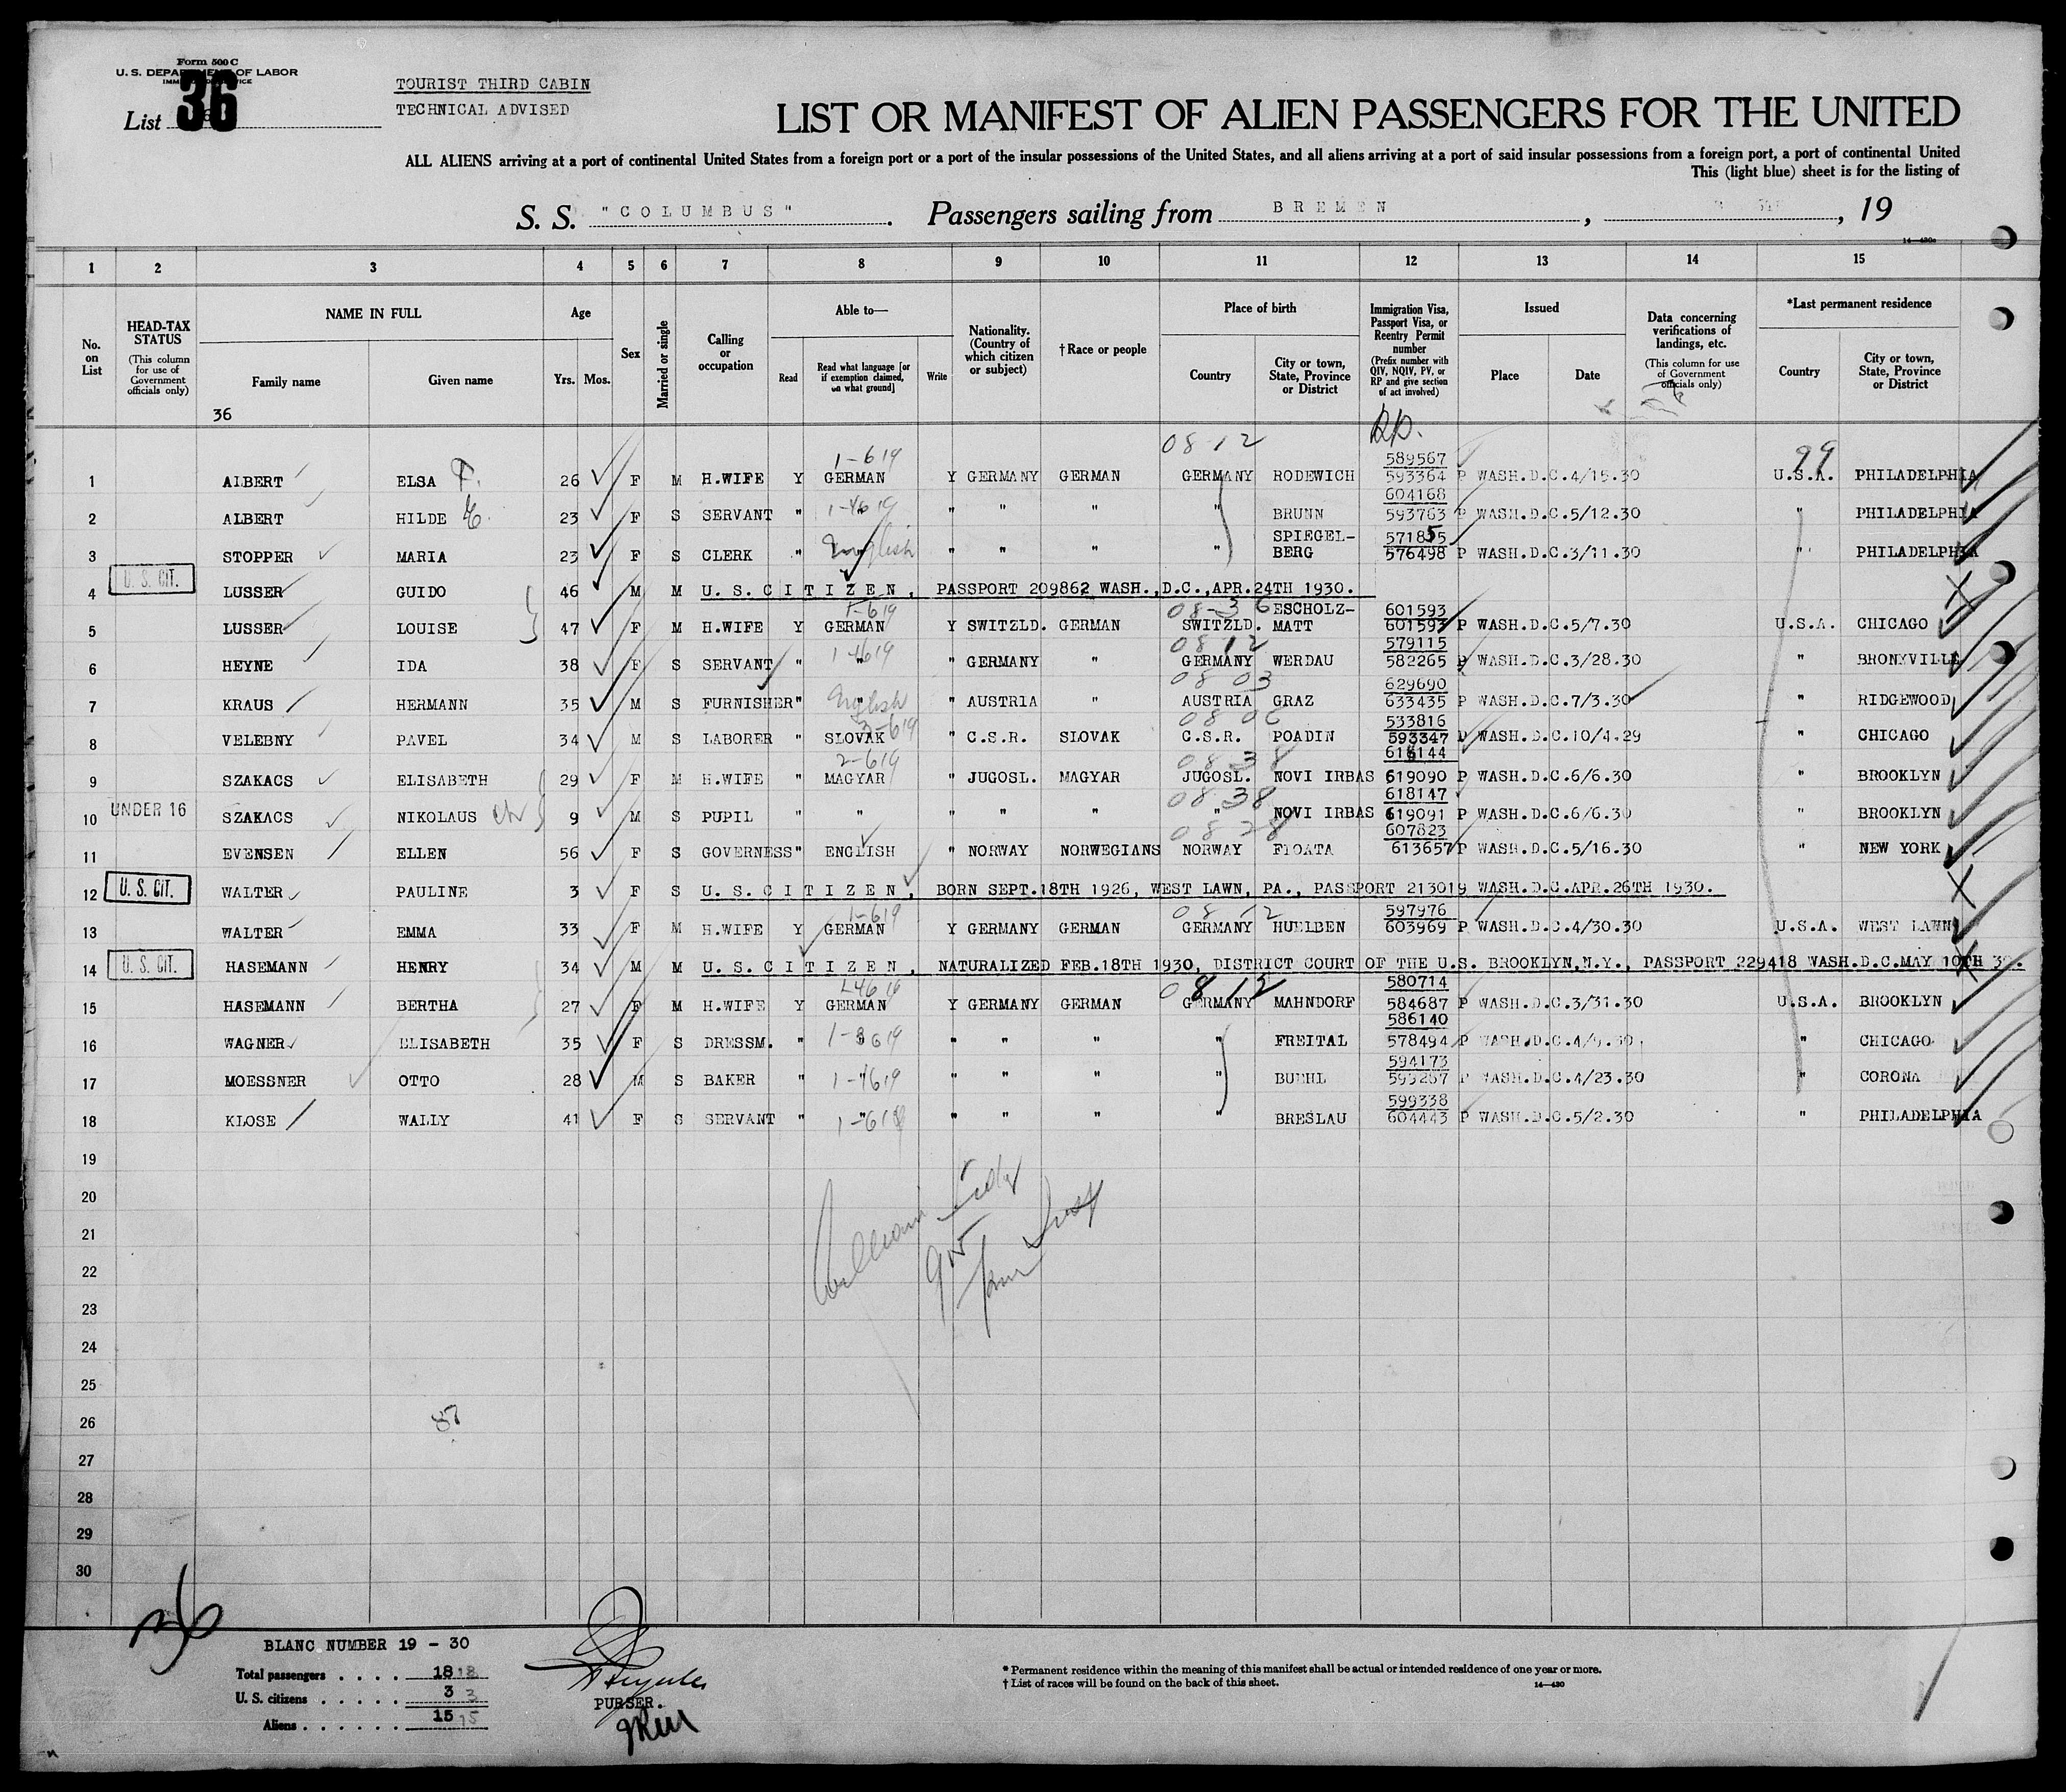 Form 500 C
U. S. DEPARTMENT OF LABOR
List 36
TOURIST THIRD CABIN
TECHNICAL ADVISED
LIST OR MANIFEST OF ALIEN PASSENGERS FOR THE UNITED
ALL ALIENS arriving at a port of continental United States from a foreign port or a port of the insular possessions of the United States, and all aliens arriving at a port of said insular possessions from a foreign port, a port of continental United
This (light blue) sheet is for the listing of
S. S. "COLUMBUS". Passengers sailing from BREMEN, , 19
14—430a
1 2 3 4 5 6 7 8 9 10 11 12 13 14 15
No. on List
HEAD-TAX STATUS (This column for use of Government officials only)
NAME IN FULL Family name Given name
Age Yrs. Mos.
Sex
Married or single
Calling or occupation
Able to— Read Read what language [or if exemption claimed, on what ground] Write
Nationality. (Country of which citizen or subject)
†Race or people
Place of birth Country City or town, State, Province or District
Immigration Visa, Passport Visa, or Reentry Permit number (Prefix number with QIV, NQIV, PV, or RP and give section of act involved)
Issued Place Date
Data concerning verifications of landings, etc. (This column for use of Government officials only)
*Last permanent residence Country City or town, State, Province or District
36
RP.
08-12 99
1-619 589567
1 ALBERT ELSA F. 26 F M H.WIFE Y GERMAN Y GERMANY GERMAN GERMANY RODEWICH 593364 P WASH.D.C.4/15.30 U.S.A. PHILADELPHIA
604168
2 ALBERT HILDE E. 23 F S SERVANT " 1-4619 " " " " BRUNN 593763 P WASH.D.C.5/12.30 " PHILADELPHIA
SPIEGEL- 571855
3 STOPPER MARIA 23 F S CLERK " English " " " " BERG 576498 P WASH.D.C.3/11.30 " PHILADELPHIA
U. S. CIT.
4 LUSSER GUIDO 46 M M U.S.CITIZEN, PASSPORT 209862 WASH.,D.C.,APR.24TH 1930.
1-619 08-36 ESCHOLZ- 601593
5 LUSSER LOUISE 47 F M H.WIFE Y GERMAN Y SWITZLD. GERMAN SWITZLD. MATT 601593 P WASH.D.C.5/7.30 U.S.A. CHICAGO
1-4619 08 12 579115
6 HEYNE IDA 38 F S SERVANT " " " GERMANY " GERMANY WERDAU 582265 P WASH.D.C.3/28.30 " BRONYVILLE
08 03 629690
7 KRAUS HERMANN 35 M S FURNISHER " English " AUSTRIA " AUSTRIA GRAZ 633435 P WASH.D.C.7/3.30 " RIDGEWOOD
08 06 533816
8 VELEBNY PAVEL 34 M S LABORER " SLOVAK " C.S.R. SLOVAK C.S.R. POADIN 593347 P WASH.D.C.10/4.29 " CHICAGO
2-619 08 38 618144
9 SZAKACS ELISABETH 29 F M H.WIFE " MAGYAR " JUGOSL. MAGYAR JUGOSL. NOVI IRBAS 619090 P WASH.D.C.6/6.30 " BROOKLYN
UNDER 16 08 38 618147
10 SZAKACS NIKOLAUS 9 M S PUPIL " " " " " " NOVI IRBAS 619091 P WASH.D.C.6/6.30 " BROOKLYN
08 28 607823
11 EVENSEN ELLEN 56 F S GOVERNESS " ENGLISH " NORWAY NORWEGIANS NORWAY FLOATA 613657 P WASH.D.C.5/16.30 " NEW YORK
U. S. CIT.
12 WALTER PAULINE 3 F S U.S.CITIZEN, BORN SEPT.18TH 1926, WEST LAWN, PA., PASSPORT 213019 WASH.D.C.APR.26TH 1930.
1-619 08 12 597976
13 WALTER EMMA 33 F M H.WIFE Y GERMAN Y GERMANY GERMAN GERMANY HUELBEN 603969 P WASH.D.C.4/30.30 U.S.A. WEST LAWN
U. S. CIT.
14 HASEMANN HENRY 34 M M U.S.CITIZEN, NATURALIZED FEB.18TH 1930, DISTRICT COURT OF THE U.S. BROOKLYN,N.Y., PASSPORT 229418 WASH.D.C.MAY 10TH 30.
08 12 580714
15 HASEMANN BERTHA 27 F M H.WIFE Y GERMAN Y GERMANY GERMAN GERMANY MAHNDORF 584687 P WASH.D.C.3/31.30 U.S.A. BROOKLYN
586140
16 WAGNER ELISABETH 35 F S DRESSM. " " " " " FREITAL 578494 P WASH.D.C.4/9.30. " CHICAGO
594173
17 MOESSNER OTTO 28 M S BAKER " 1-4619 " " " " BUEHL 599287 P WASH.D.C.4/23.30 " CORONA
599338
18 KLOSE WALLY 41 F S SERVANT " 1-619 " " " " BRESLAU 604443 P WASH.D.C.5/2.30 " PHILADELPHIA
19
20
21
22
23
24
25
26 87
27
28
29
30
36
BLANC NUMBER 19 - 30
Total passengers . . . . 18 18
U. S. citizens . . . . . 3 3
Aliens . . . . . . 15 15
PURSER.
* Permanent residence within the meaning of this manifest shall be actual or intended residence of one year or more.
† List of races will be found on the back of this sheet.
14—430